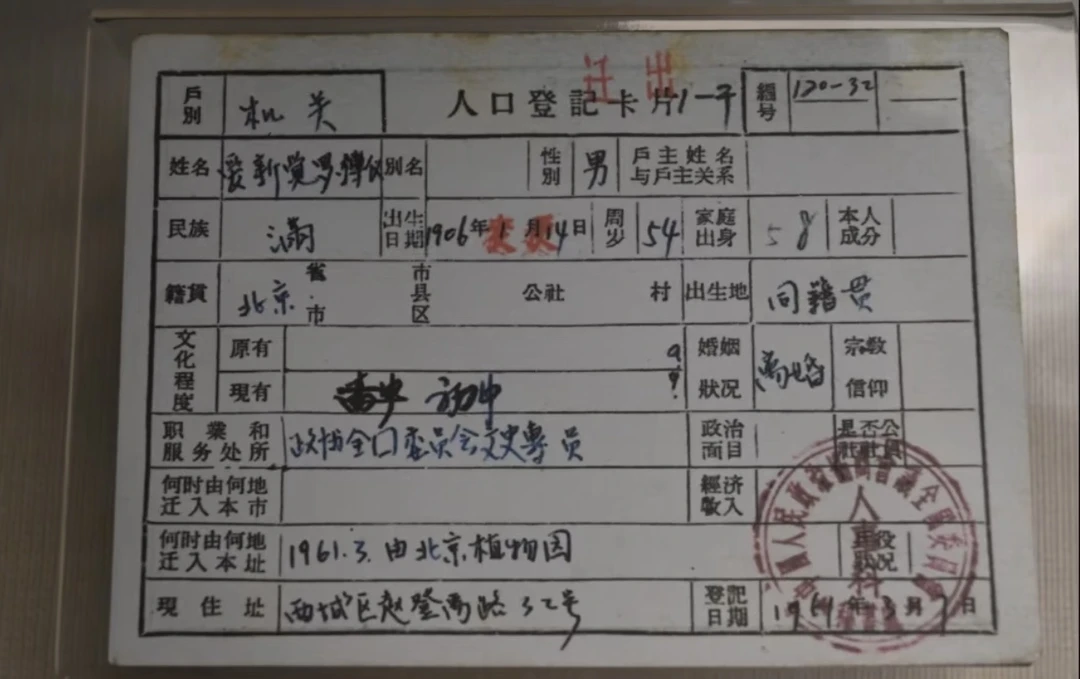 迁出
戶別 机关 人口登記卡片 编号 120-32
姓名 爱新觉罗溥仪 別名 性別 男 戶主姓名与戶主关系
民族 满 出生日期 1906年1月14日 周岁 54 家庭出身 本人成分
籍貫 北京 省市 市县区 公社 村 出生地 同籍贯
文化程度 原有 婚姻狀况 离婚 宗教信仰
現有 初中
职業和服务处所 政协全囗委员会文史專员 政治面目 是否公社社員
何时由何地迁入本市 經济收入
何时由何地迁入本址 1961.3.由北京植物园
現住址 西城区赵登禹路32号 登記日期 年3月7日
人事科